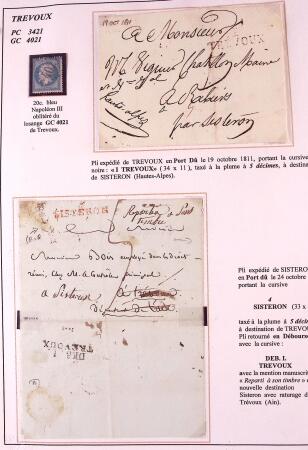 TREVOUX
PC 3421
GC 4021
20c. bleu
Napoléon III
oblitéré du
losange GC 4021
de Trevoux.
19 oct 1811
A Monsieur
TREVOUX
A
par Sisteron
Pli expédié de TREVOUX en Port Dû le 19 octobre 1811, portant la cursive
noire : «1 TREVOUX» (34 x 11), taxé à la plume à 5 décimes, à destina
de SISTERON (Hautes-Alpes).
SISTERON
Monsieur
employé dans la direct
à Sisteron
DEB. 1
TREVOUX
Pli expédié de SISTERO
en Port dû le 24 octobre
portant la cursive
4
SISTERON (33 x
taxé à la plume à 5 décim
à destination de TREVOU
Pli retourné en Débours
avec la cursive :
DEB. 1.
TREVOUX
avec la mention manuscrit
« Reparti à son timbre »
nouvelle destination
Sisteron avec raturage d
Trévoux (Ain).